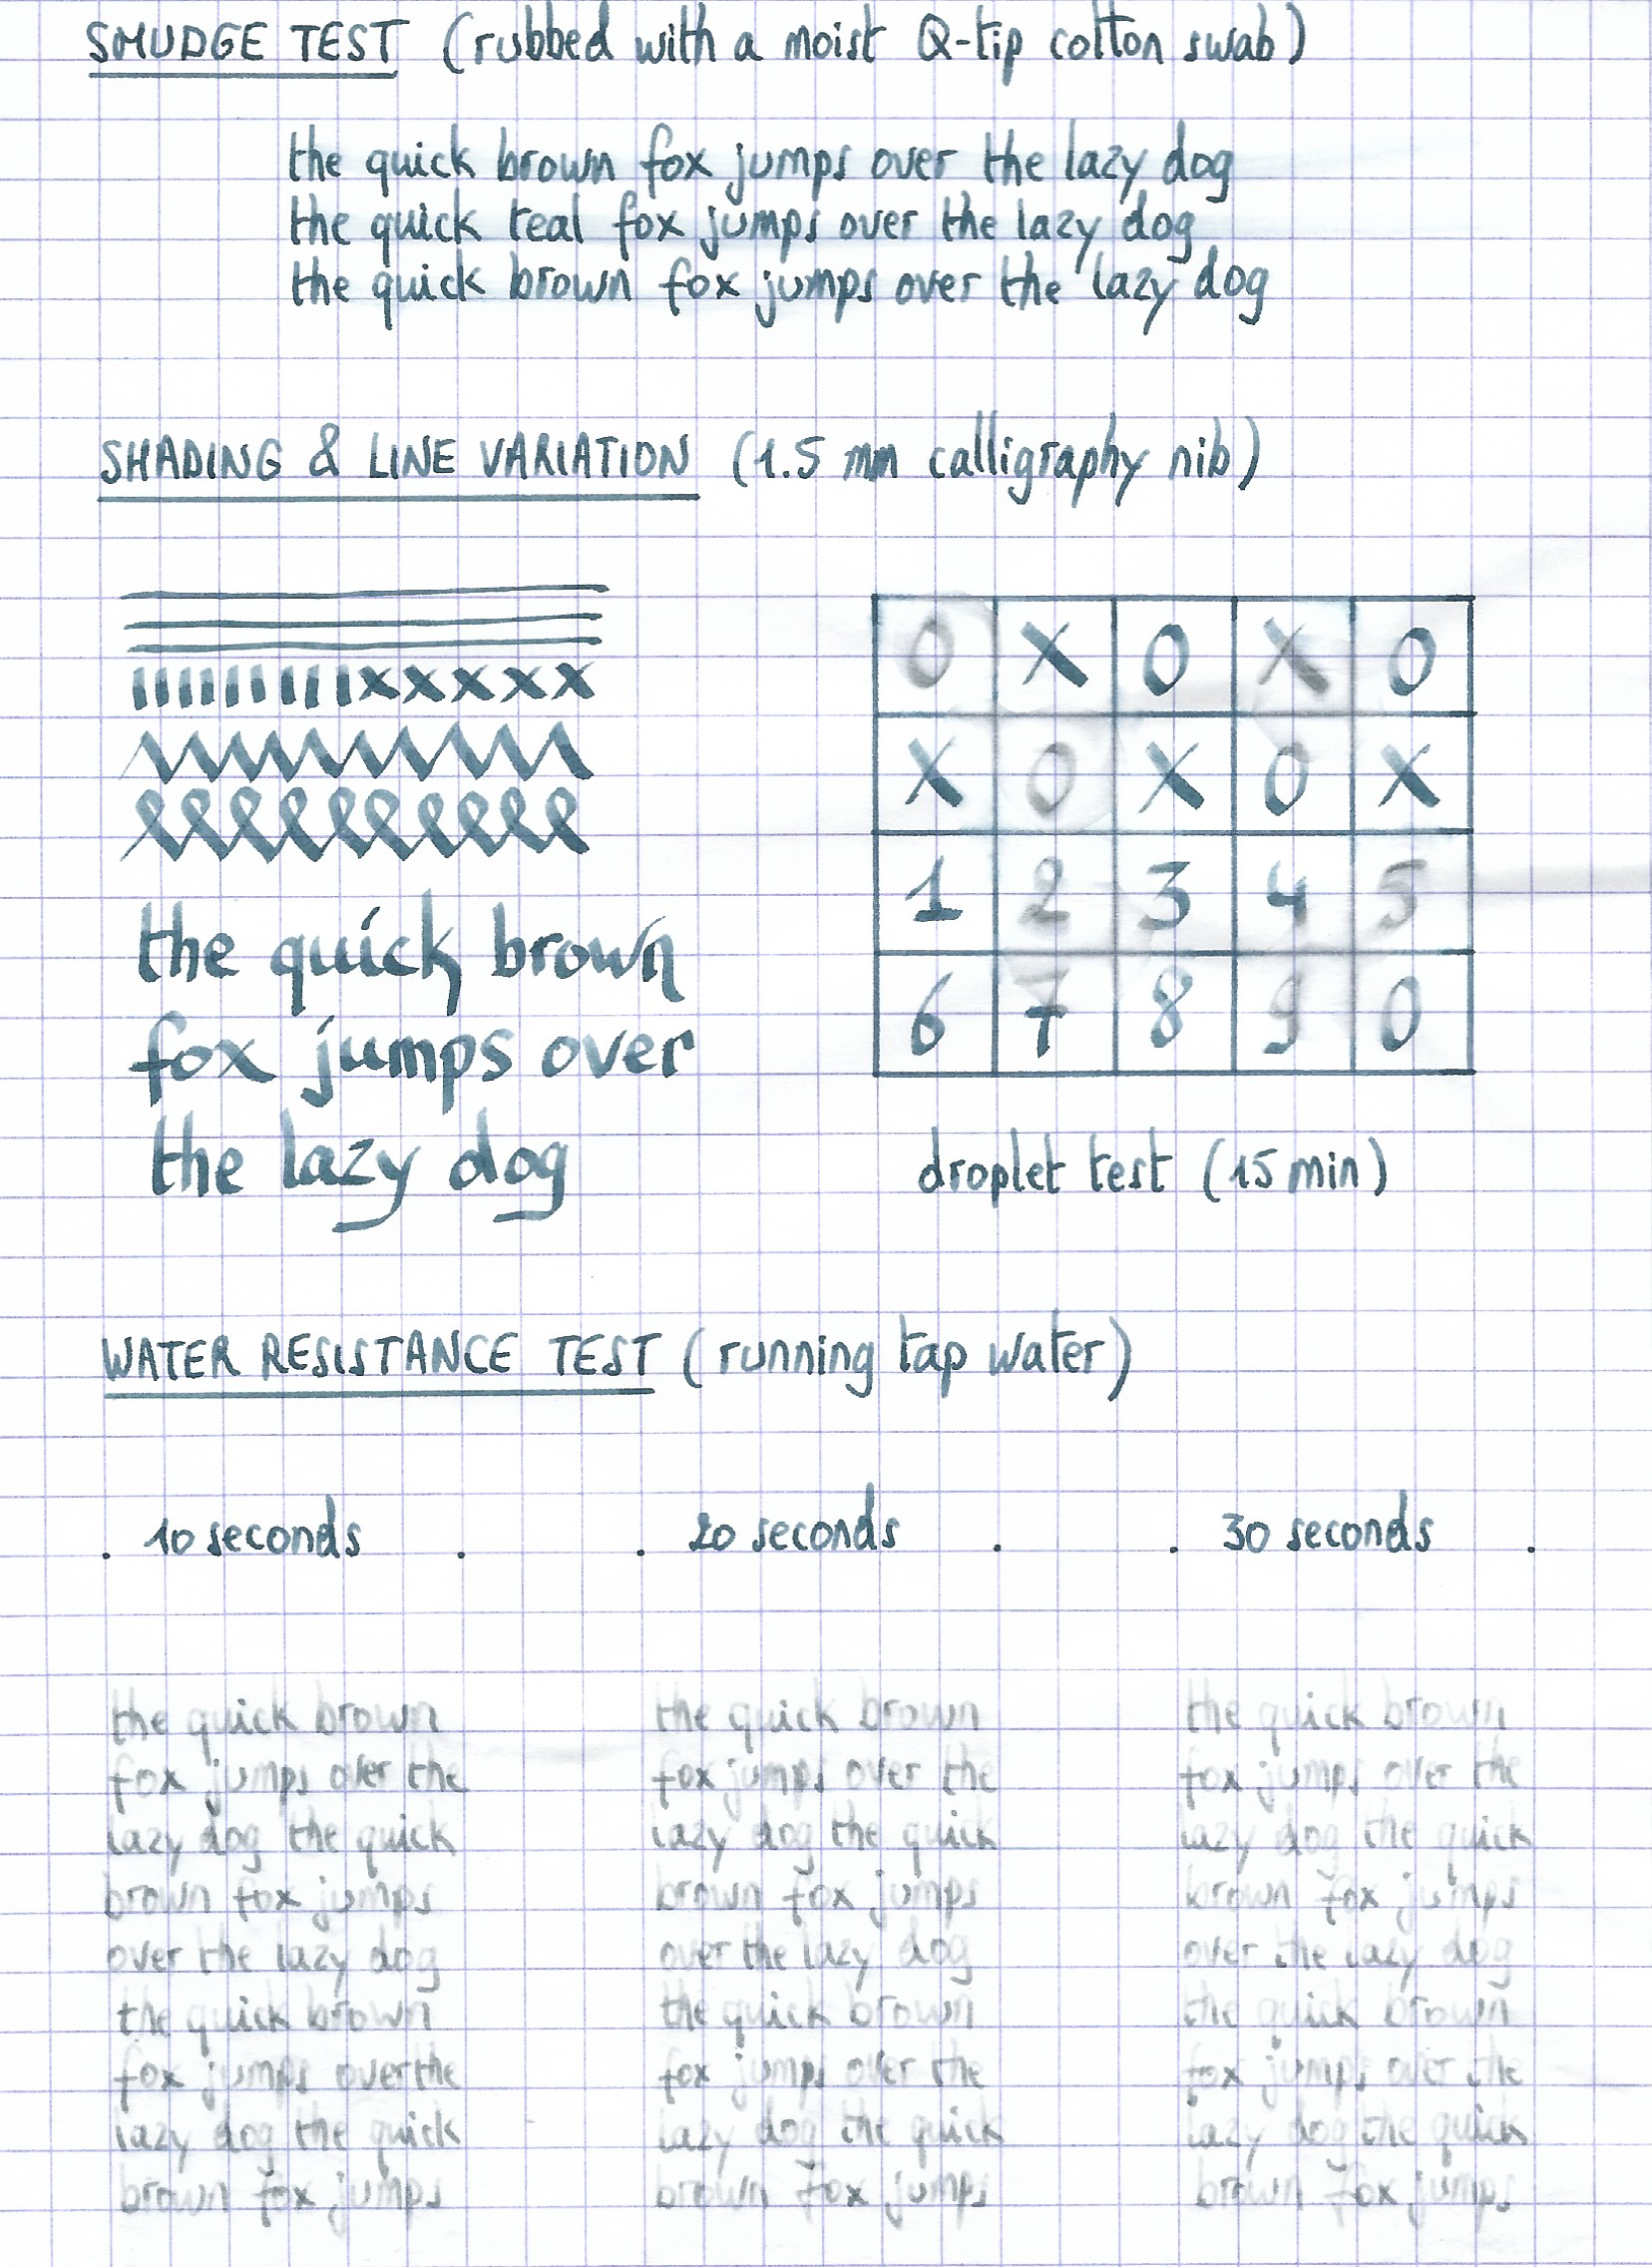 SMUDGE TEST (rubbed with a moist Q-tip cotton swab)
the quick brown fox jumps over the lazy dog
the quick teal fox jumps over the lazy dog
the quick brown fox jumps over the lazy dog
SHADING & LINE VARIATION (1.5 mm calligraphy nib)
IIIIIIIIIIxxxxx
the quick brown
fox jumps over
the lazy dog
O X O X O
X O X O X
1 2 3 4 5
6 7 8 9 0
droplet test (15 min)
WATER RESISTANCE TEST (running tap water)
. 10 seconds .
the quick brown
fox jumps over the
lazy dog the quick
brown fox jumps
over the lazy dog
the quick brown
fox jumps over the
lazy dog the quick
brown fox jumps
. 20 seconds .
the quick brown
fox jumps over the
lazy dog the quick
brown fox jumps
over the lazy dog
the quick brown
fox jumps over the
lazy dog the quick
brown fox jumps
. 30 seconds .
the quick brown
fox jumps over the
lazy dog the quick
brown fox jumps
over the lazy dog
the quick brown
fox jumps over the
lazy dog the quick
brown fox jumps